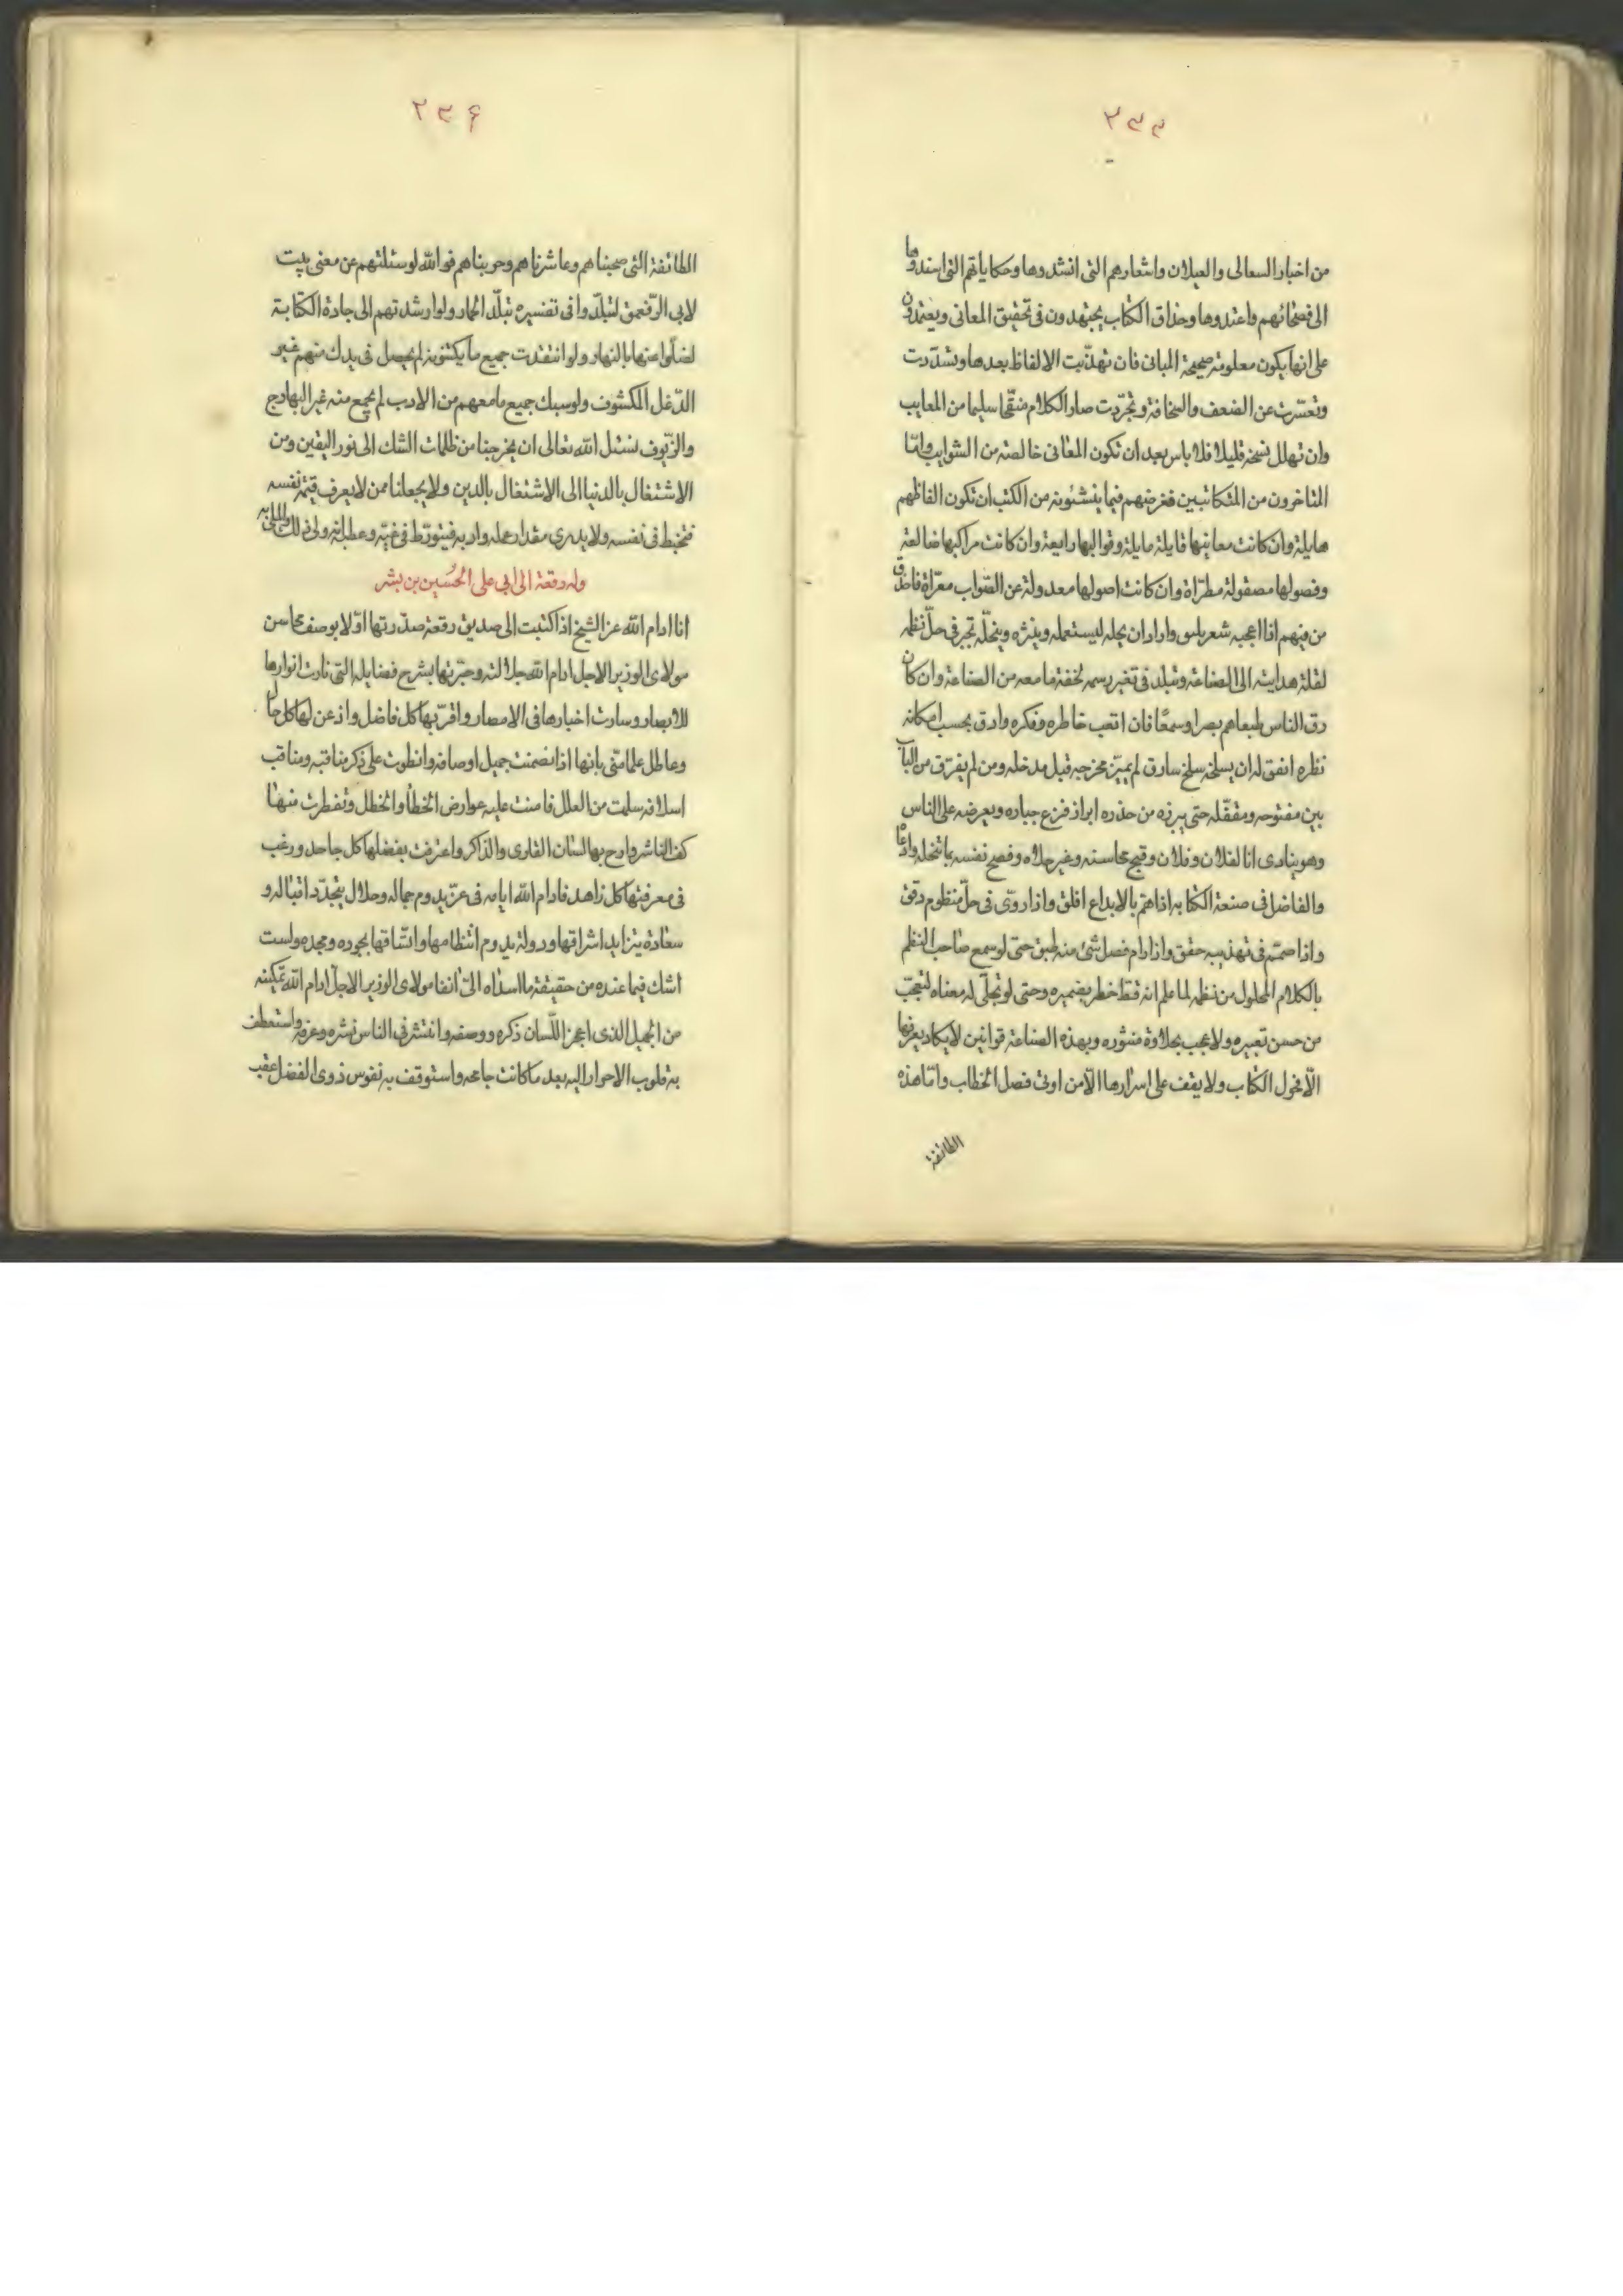 ٢٣٣
من اخبار السعالى والعيلان واشعارهم التى انشدوها وحكاياتهم التى اسندوها
الى فصحائهم واعتدوها وحذاق الكتاب يجتهدون فى تحقيق المعانى ويعتمدون
على انها يكون معلومة صحيحة المبانى فان تهذبت الالفاظ بعدها وتشذرت
وتعسرت عن الضعف والسخافة وتجردت صار الكلام منقحا سليما من المعايب
وان تهلل نسجه قليلا فلا باس بعد ان تكون المعانى خالصة من الشوايب وامّا
المتاخرون من المتكاتبين فغرضهم فيما ينشئونه من الكتب ان تكون الفاظهم
هايلة وان كانت معانيها قايلة مايلة وقوالبها رايعة وان كانت مراكبها ضالعة
وفصولها مصقولة مطرّاة وان كانت اصولها معدولة عن الصّواب معرّاة فاحذق
من فيهم اذا اعجبه شعر بليس واراد ان يحله ليستعمله وينثره وينحلّه تحير فى حلّ نظمه
لقلة هدايته الى الصناعة وتبلد فى تغير رسمه لخفة ما معه من الصناعة وان كان
دق الناس طبعاهم بصرا وسمعًا فان اتعب خاطره وفكره وادق بحسب امكانه
نظره اتفق له ان يسلخه سلخ سارق لم يميّز مخرجه قبل مدخله ومن لم يفرّق من الباب
بين مفتوحه ومقفّله حتى يبرزه من حذره ابراز فزع جباره ويعرضه على الناس
وهو ينادى انا لفلان وفلان وقبح محاسنه وغير حلاه وفضح نفسه بما تنحله وادّعاه
والفاضل فى صنعة الكتابه اذا همّ بالابداع افلق واذا روّى فى حلّ منظوم دقق
واذا صمّم فى تهذيبه حقق واذا رام فصل شئ منه طبق حتى لو سمع صاحب النظم
بالكلام المحلول من نظمه لما علم انه قط خطر بضميره وحتى لو تجلّى له معناه لتعجّب
من حسن تعبيره ولا عجب بحلاوة منثوره وبهذه الصناعة قوانين لا يكاد يعرفها
الّا فحول الكتاب ولا يقف على اسرارها الّا من اوتى فصل الخطاب وامّا هذه
الطائفة
٢٣۴
الطائفة التى صحبناهم وعاشرناهم وجربناهم فوالله لو سئلتهم عن معنى بيت
لابى الرّقعمق لتبلّدوا فى تفسيره تبلّد الحمار ولو ارشدتهم الى جادة الكتابة
لضلّوا عنها بالنهار ولو انتقدت جميع ما يكتبونه لم يحصل فى يدك منهم غير
الدّغل المكشوف ولو سبك جميع ما معهم من الادب لم يجمع منه غير البهارج
والزّيوف نسئل الله تعالى ان يخرجنا من ظلمات الشك الى نور اليقين ومن
الاشتغال بالدنيا الى الاشتغال بالدين ولا يجعلنا ممن لا يعرف قيمة نفسه
فتخبط فى نفسه ولا يدرى مقدار عمله واربه فيتورّط فى غيّه وعطبه انه ولى ذلك والملى به
وله رقعة الى ابى على الحُسين بن بشر
انا ادام الله عز الشيخ اذا كتبت الى صديق رقعة صدّرتها اوّلا بوصف محاسن
مولاى الوزير الاجل ادام الله جلالته وحبّرتها بشرح فضايله التى نارت انوارها
للابصار وسارت اخبارها فى الامصار واقرّ بها كل فاضل واذعن لها كل حال
وعاطل علما متّى بانها اذا تضمنت جميل اوصافه وانطوت على ذكر مناقبه ومناقب
اسلافه سلمت من العلل فامنت عليه عوارض الخطأ والخطل وتفطرت منها
كف الناشر وارح بها لسان القارى والذاكر واعترفت بفضلها كل جاحد ورغب
فى معرفتها كل زاهد فادام الله ايامه فى عزّ يدوم جماله وجلال يتجدّد اقباله و
سعادة يتزايد اشراقها ودولة يدوم انتظامها واتّساقها بجوده ومجده ولست
اشك فيما عنده من حقيقة ما اسداه الىّ انفا مولاى الوزير الاجلّ ادام الله تمكينه
من الجميل الذى اعجز اللّسان ذكره ووصفه وانتشر فى الناس نشره وعرفه واستعطف
به قلوب الاحرار اليه بعد ما كانت جامحه واستوقف به نفوس ذوى الفضل عقب